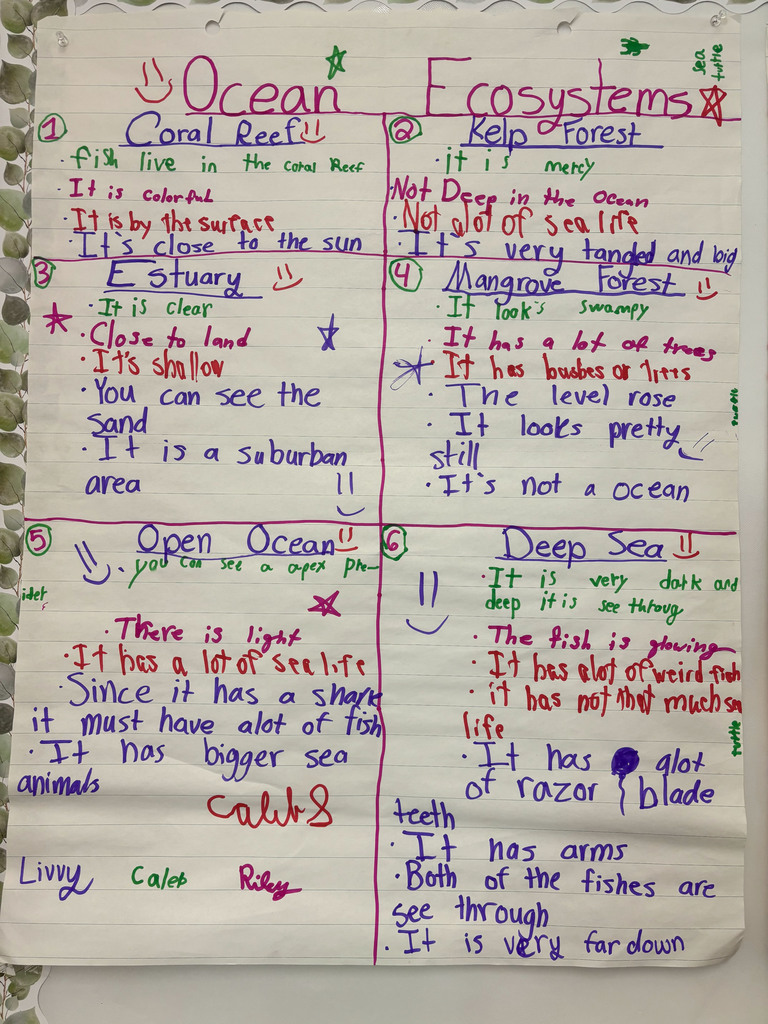 Ocean Ecosystems
sea
turtle
1 Coral Reef
· fish live in the coral Reef
· It is colorful
· It is by the surface
· It's close to the sun
2 Kelp Forest
· it is mercy
Not Deep in the ocean
· Not alot of sea life
· It's very tangled and big
3 Estuary
· It is clear
· Close to land
· It's shallow
· You can see the
sand
· It is a suburban
area
4 Mangrove Forest
· It look's swampy
· It has a lot of trees
· It has bushes or trees
· The level rose
· It looks pretty
still
· It's not a ocean
turtle
5 Open Ocean
· you can see a apex pre-
· There is light
· It has a lot of sea life
· Since it has a shark
it must have alot of fish
· It has bigger sea
animals
Caleb S
Livvy Caleb Riley
6 Deep Sea
· It is very dark and
deep it is see throug
· The fish is glowing
· It has alot of weird fish
· it has not that much sea
life
· It has alot
of razor blade
teeth
· It has arms
· Both of the fishes are
see through
· It is very far down
turtle